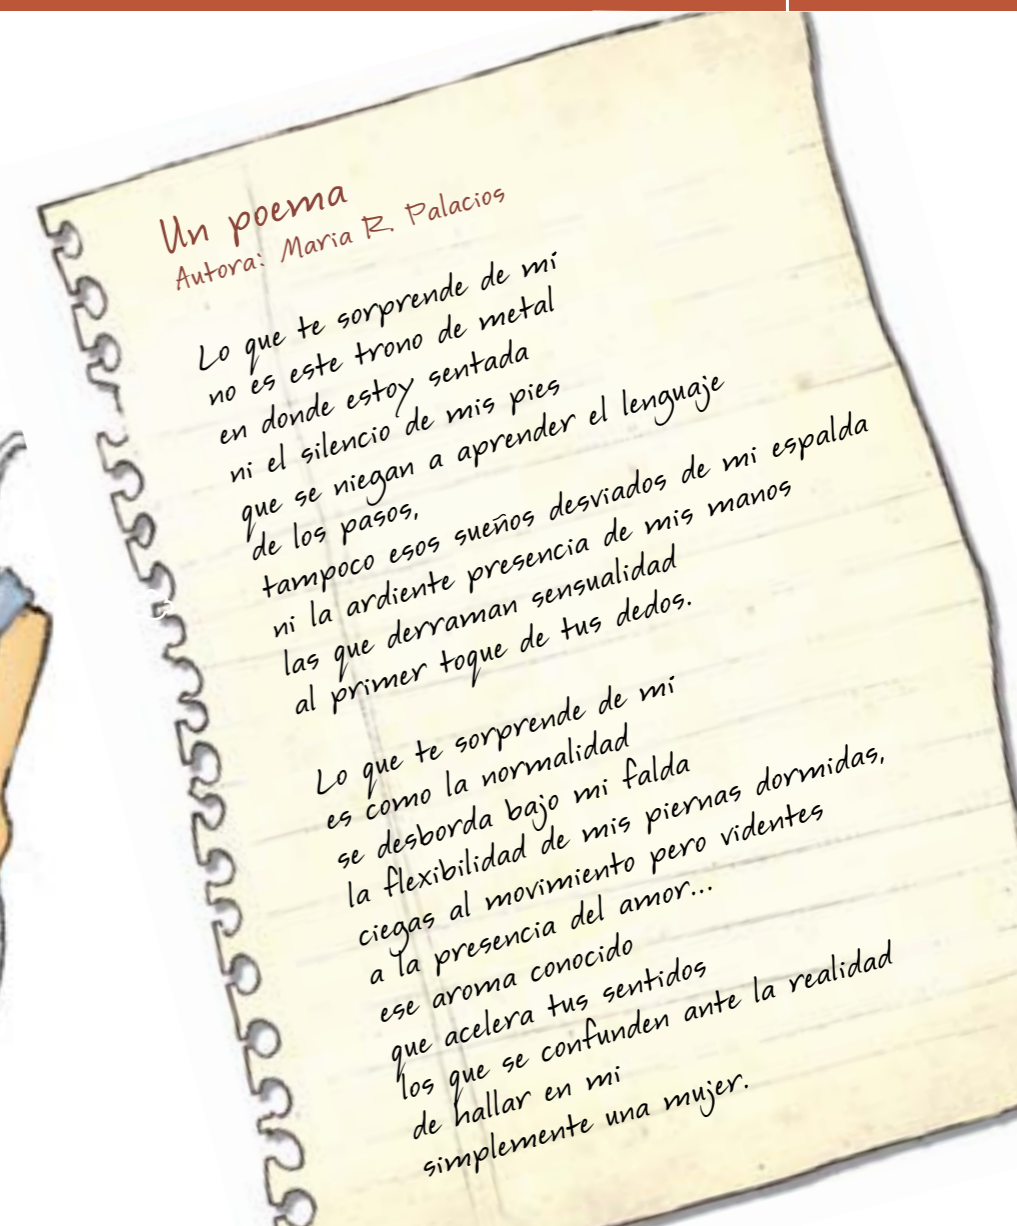 Un poema
Autora: Maria R. Palacios
Lo que te sorprende de mi
no es este trono de metal
en donde estoy sentada
ni el silencio de mis pies
que se niegan a aprender el lenguaje
de los pasos,
tampoco esos sueños desviados de mi espalda
ni la ardiente presencia de mis manos
las que derraman sensualidad
al primer toque de tus dedos.
Lo que te sorprende de mi
es como la normalidad
se desborda bajo mi falda
la flexibilidad de mis piernas dormidas,
ciegas al movimiento pero videntes
a la presencia del amor...
ese aroma conocido
que acelera tus sentidos
los que se confunden ante la realidad
de hallar en mi
simplemente una mujer.